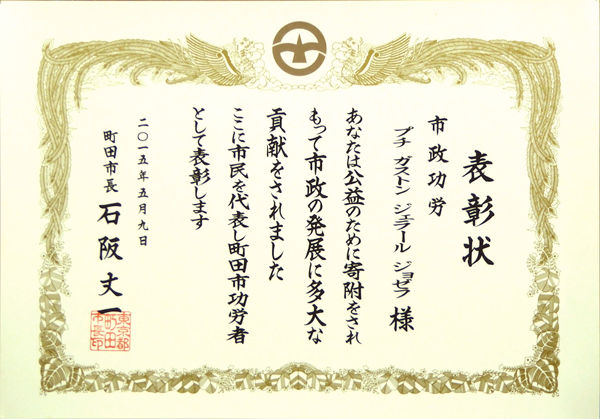 表彰状
市政功労
プチ ガストン ジェラール ジョゼフ 様
あなたは公益のために寄附をされ
もって市政の発展に多大な
貢献をされました
ここに市民を代表し町田市功労者
として表彰します
二〇一五年五月九日
町田市長 石阪丈一
東京都
町田
市長印